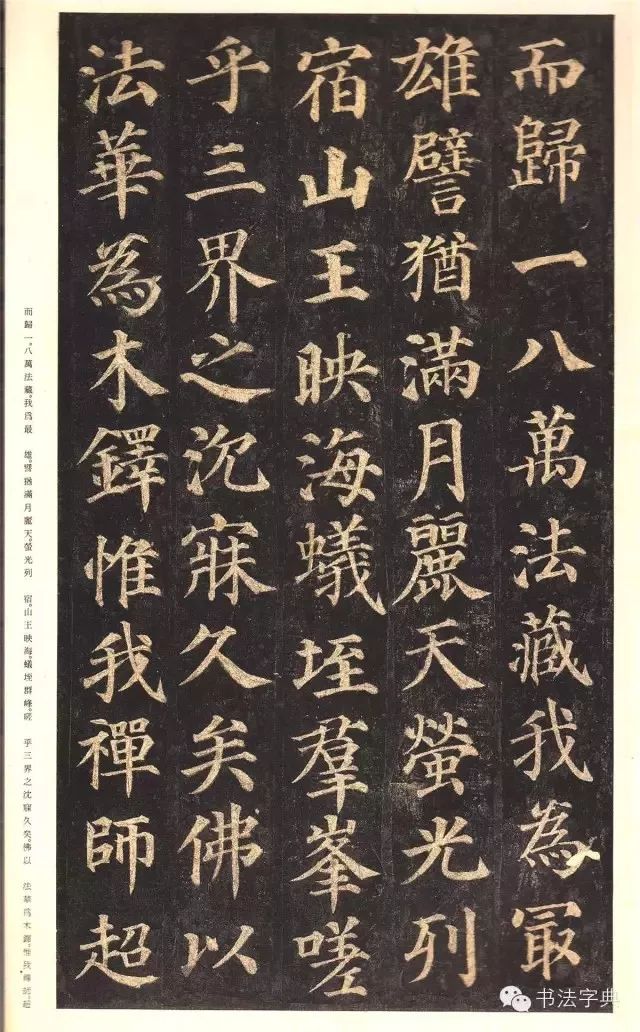 而歸一八萬法藏我為冣
雄譬猶滿月麗天螢光列
宿山王映海蟻垤羣峯嗟
乎三界之沉寐久矣佛以
法華為木鐸惟我禪師超
而歸一。八萬法藏。我爲最　雄。譬猶滿月麗天。螢光列　宿。山王映海。蟻垤群峰。嗟　乎三界之沈寐久矣。佛以　法華爲木鐸。惟我禪師。超
书法字典